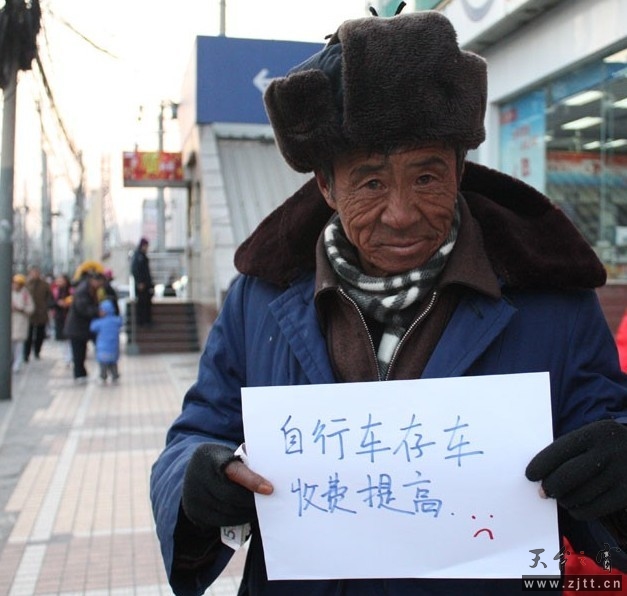 自行车存车
收费提高..
天台之窗
www.zjtt.cn